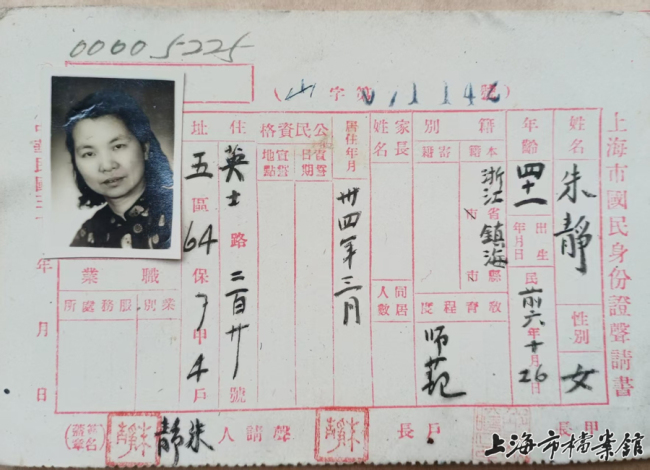 0000 5225
(山字第 號)
上海市國民身份證聲請書
姓名 朱靜 性別 女
年齡 四十一 出生年月日 民前六年十月26日
籍別 本籍 浙江省鎮海縣市 寄籍 省市 教育程度 師範
家長姓名 同居人數
居住年月 卅四年三月
公民資格 宣誓日期 宣誓地點
住址 英士路二百廿號 五區64保7甲4戶
職業 業別 服務處所
年月日
甲長 戶長 聲請人 朱靜 (簽名蓋章)
上海市檔案館